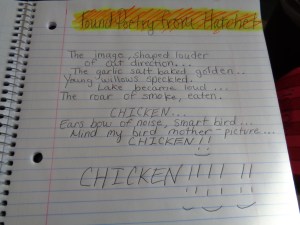 Found Poetry from: Hatchet
The image, shaped louder
of cut direction...
The garlic salt baked golden...
Young willows speckled.
Lake became loud...
The roar of smoke, eaten.
CHICKEN...
Ears bow of noise, smart bird...
Mind my bird mother-picture...
CHICKEN!!
CHICKEN!!!! !!